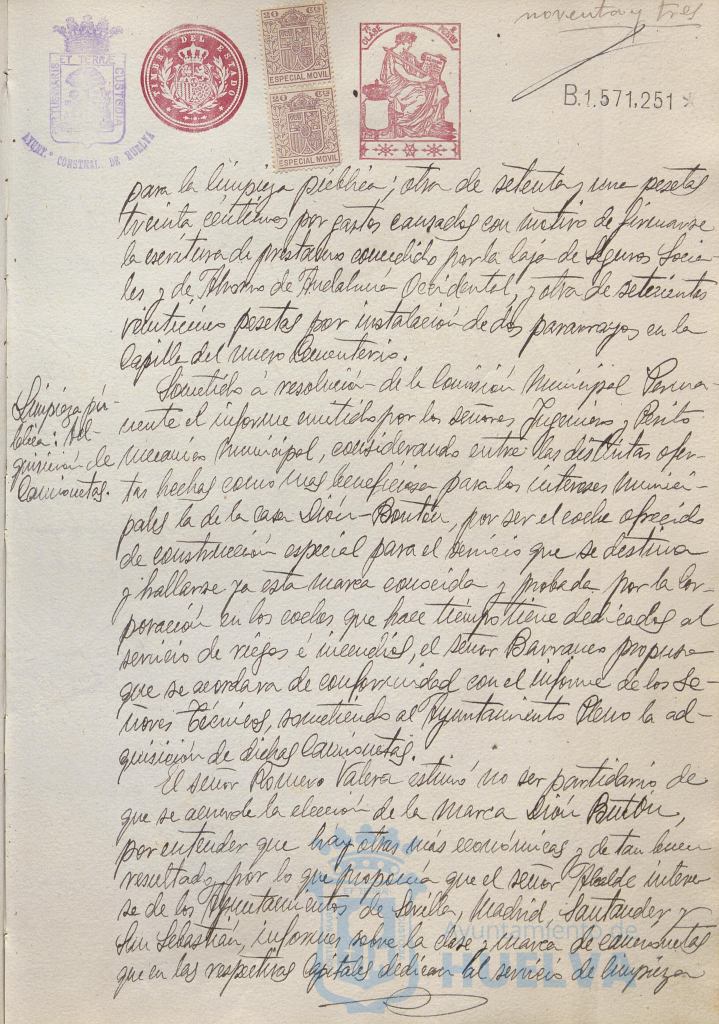 noventa y tres
PORTUS MARIS ET TERRÆ CUSTODIA
AYUNT.º CONSTNAL. DE HUELVA
TIMBRE DEL ESTADO
20 CS
ESPECIAL MOVIL
20 CS
ESPECIAL MOVIL
8ª CLASE
B.1.571.251
para la limpieza pública; otra de setenta y una pesetas
treinta céntimos por gastos causados con motivo de firmarse
la escritura de préstamo concedido por la Caja de Seguros Socia-
les y de Ahorro de Andalucía Occidental, y otra de setecientas
veinticinco pesetas por instalación de dos pararrayos en la
Capilla del nuevo Cementerio.
Limpieza pú-
blica: Ad-
quisición de
Camionetas.
Sometido á resolución de la Comisión Municipal Perma-
nente el informe emitido por los señores Ingeniero y Perito
mecánico Municipal, considerando entre las distintas ofer-
tas hechas como mas beneficiosa para los intereses munici-
pales la de la casa Dión-Boutón, por ser el coche ofrecido
de construcción especial para el servicio que se destina
y hallarse ya esta marca conocida y probada por la Cor-
poración en los coches que hace tiempo tiene dedicados al
servicio de riegos é incendios, el señor Barranco propuso
que se acordara de conformidad con el informe de los Se-
ñores Técnicos, sometiendo al Ayuntamiento Pleno la ad-
quisición de dichas Camionetas.
El señor Romero Valera estimó no ser partidario de
que se acuerde la elección de la marca Dión Butón,
por entender que hay otras más económicas y de tan buen
resultado, por lo que proponía que el señor Alcalde intere-
se de los Ayuntamientos de Sevilla, Madrid, Santander y
San Sebastián, informes sobre la clase y marca de camionetas
que en las respectivas Capitales dedican al servicio de limpieza
Ayuntamiento de
HUELVA